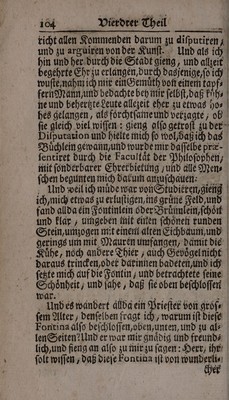 104 Vierdter Theil
richt allen Kommenden darum zu disputiren,
und zu arguiren von der Kunst. Und als ich
hin und her durch die Stadt gieng, und allzeit
begehrte Ehr zu erlangen, durch dasjenige, so ich
wuste, nahm ich mir ein Gemüth von einem tapf-
fern Mann, und bedachte bey mir selbst, daß küh-
ne und behertzte Leute allezeit eher zu etwas ho-
hes gelangen, als forchtsame und verzagte, ob
sie gleich viel wissen: gieng also getrost zu der
Disputation und hielte mich so wol, daß ich das
Büchlein gewann, und wurde mir dasselbe præ-
sentiret durch die Facultät der Philosophen,
mit sonderbarer Ehrerbietung, und alle Men-
schen begunten mich darum anzuschauen.
Und weil ich müde war von Studieren, gieng
ich, mich etwas zu erlustigen, ins grüne Feld, und
fand allda ein Fontinlein oder Brünnlein, schön
und klar, umgeben mit einem schönen runden
Stein, umzogen mit einem alten Eichbaum, und
gerings um mit Mauren umfangen, damit die
Kühe, noch andere Thier, auch Gevögel nicht
daraus trincken, oder darinnen badeten, und ich
setzte mich auf die Fontin, und betrachtete seine
Schönheit, und sahe, daß sie oben beschlossen
war.
Und es wandert allda ein Priester von gros-
sem Alter, denselben fragt ich, warum ist diese
Fontina also beschlossen, oben, unten, und zu al-
len Seiten? Und er war mir gnädig und freund-
lich, und fieng an also zu mir zu sagen: Herr, ihr
solt wissen, daß diese Fontina ist von wunderli-
cher